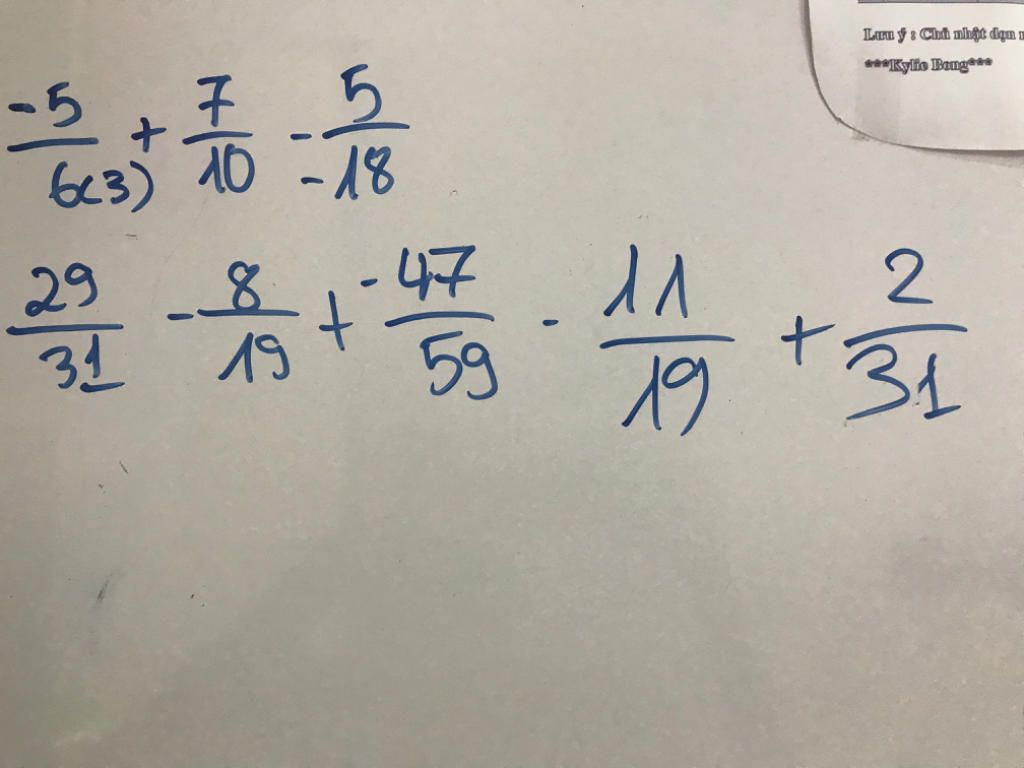 Lưu ý : Chủ nhật dọn
***Kylie Bong***
-5/6(3) + 7/10 - 5/-18
29/31 - 8/19 + -47/59 - 11/19 + 2/31